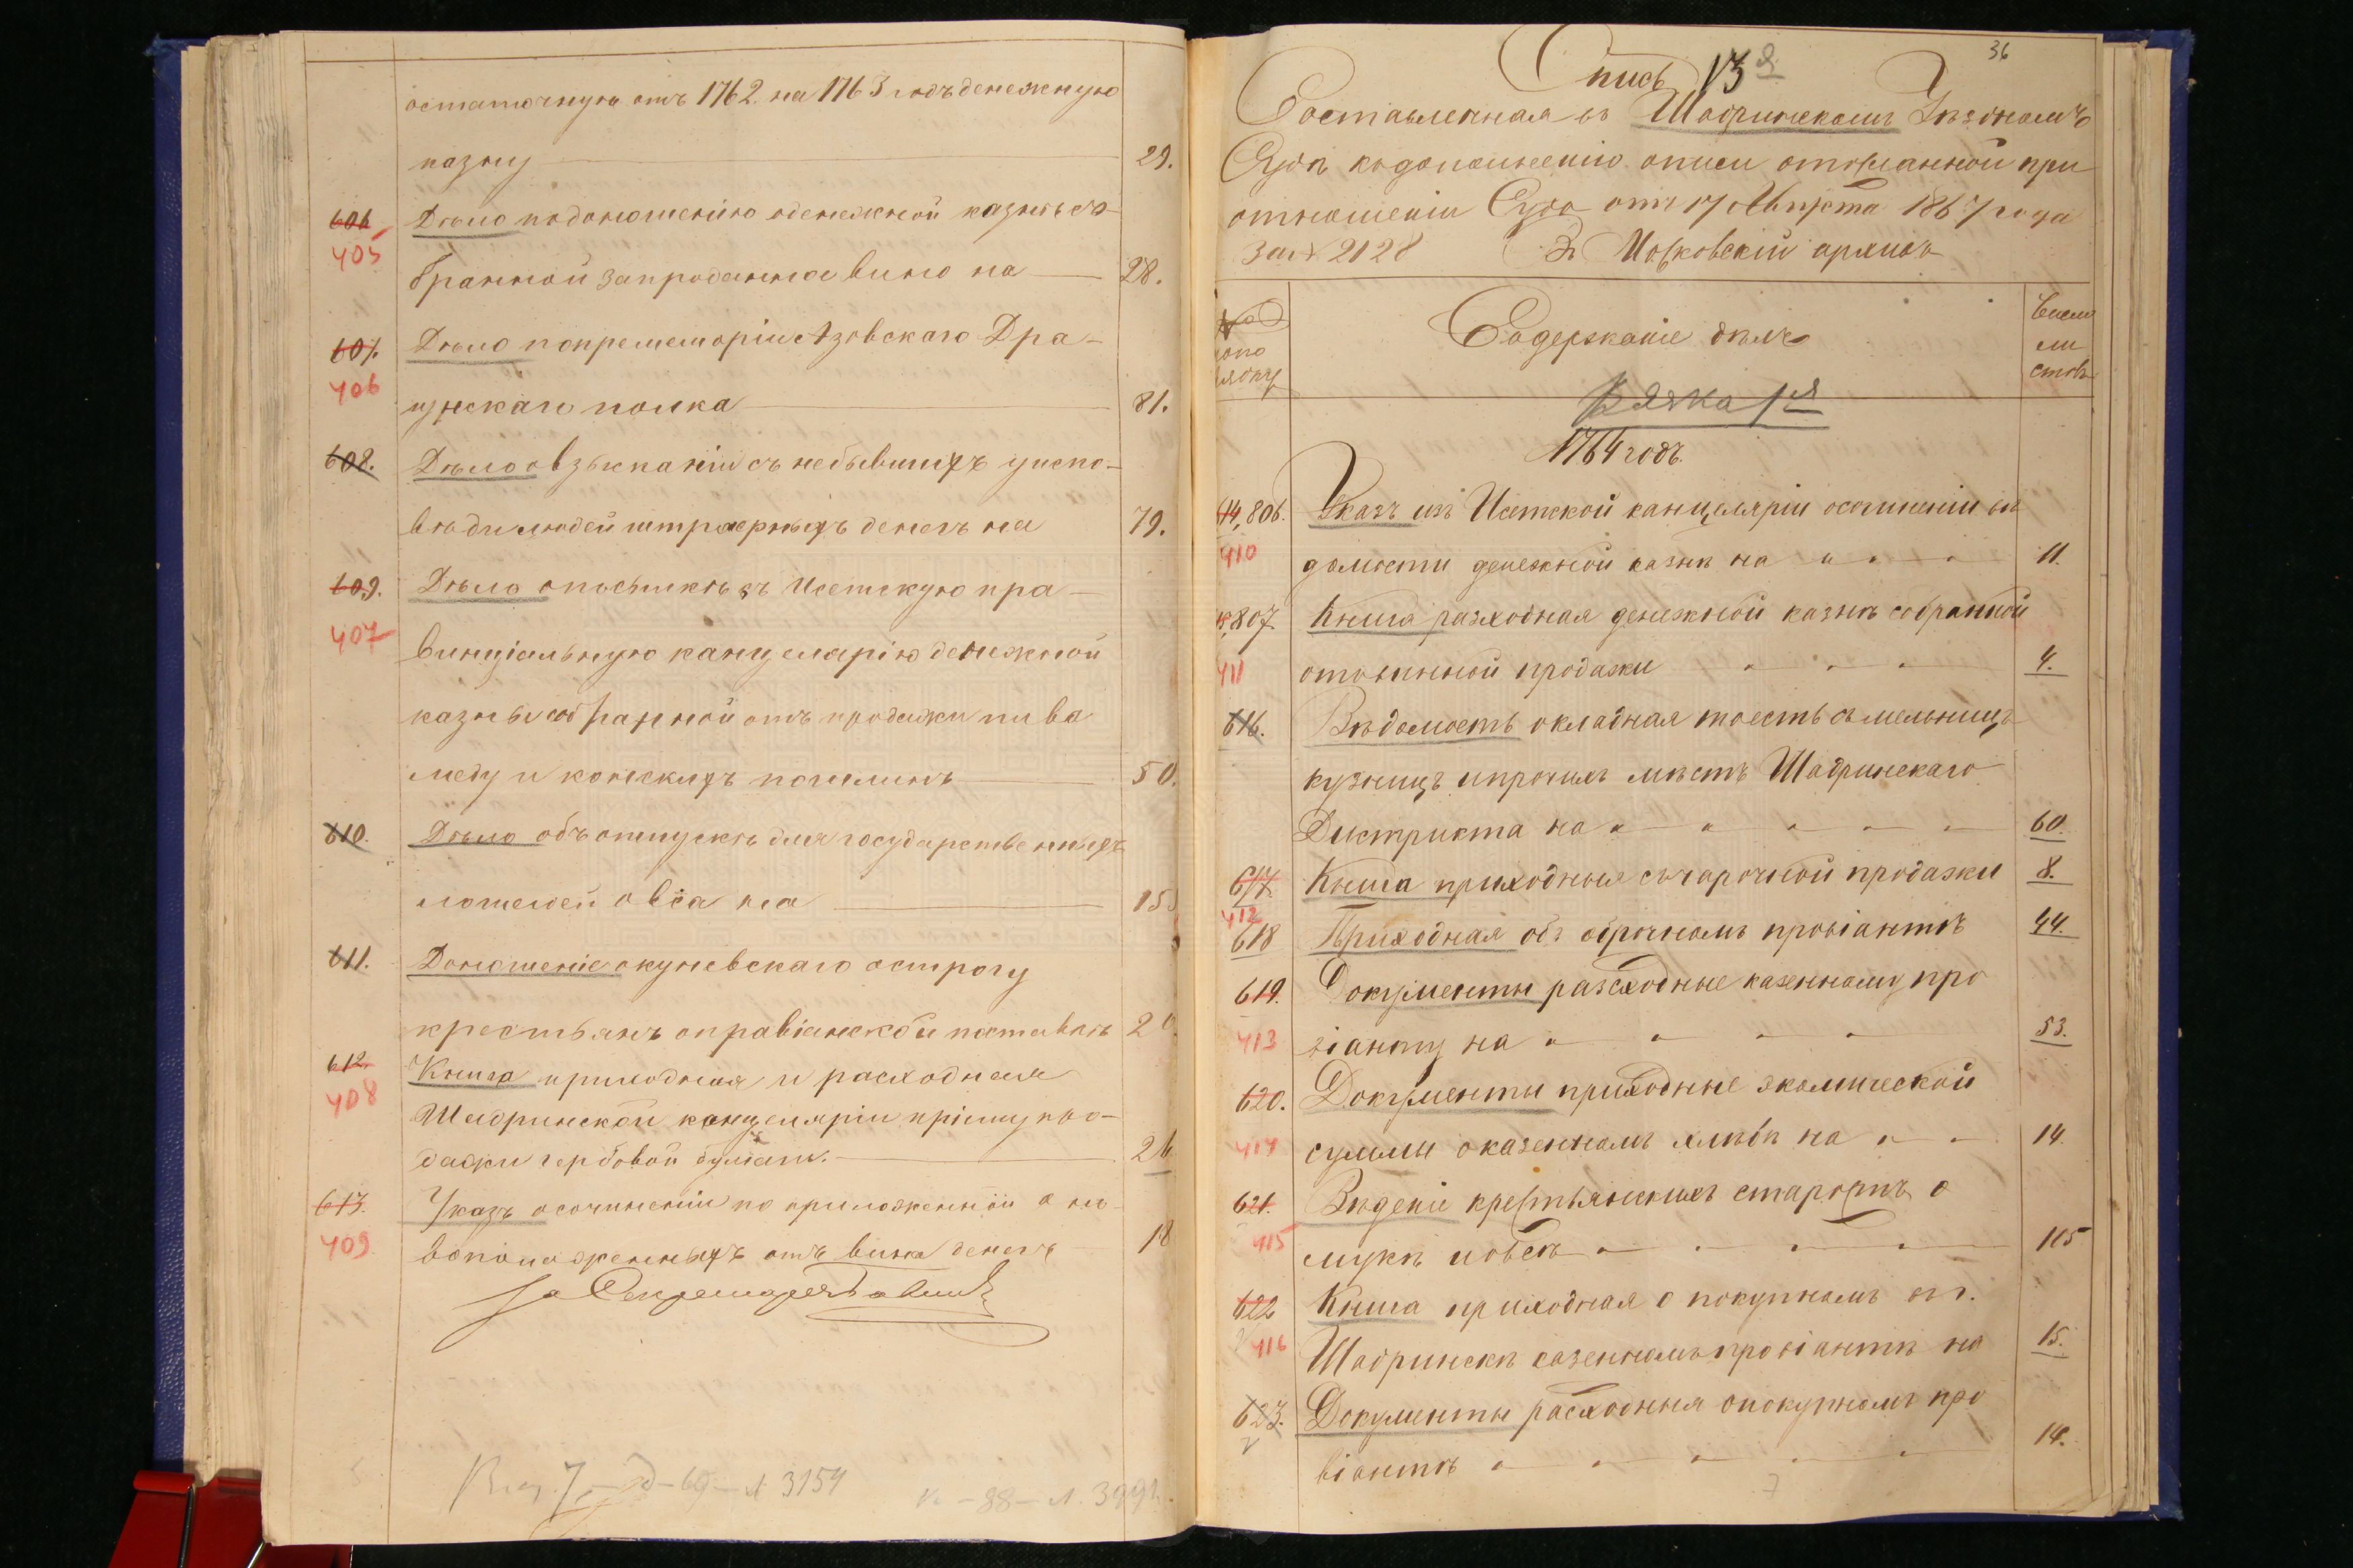 остаточную отъ 1762. на 1763 годъ денежную
казну 29.
606 Дѣло по доношенію о денежной казнѣ со-
405
бранной за проданное вино на 28.
607. Дѣло по премеморіи Азовскаго Дра-
406
гунскаго полка 81.
608. Дѣло о взысканіи съ небывшихъ у испо-
вѣди людей штрафныхъ денегъ на 79.
609. Дѣло о посылкѣ въ Исетскую про-
407
винціальную канцелярію денежной
казны собранной отъ продажи пива
меду и конскихъ пошлинъ 50.
610. Дѣло объ отпускѣ для государственныхъ
лошадей овса на 15
611. Доношеніе окуневскаго острогу
крестьянъ о правіанской поставкѣ 2
612. Книга приходная и расходная
408
Шадринской канцеляріи пріему про-
дажи гербовой бумаги. 26
613. Указъ о сочиненіи по приложенной о
409
воположенныхъ отъ вина денегъ 18
за Секретаря
7 - д - 69 - л 3154
к - 88 - л. 3991.
36
Опись 13я
Составленная въ Шадринскомъ Уѣздномъ
Судѣ къ дополненію описи отосланной при
отношеніи Суда отъ 17 Августа 1867 года
за № 2128 въ Московскій архивъ
№
по по
рядку
Содержаніе дѣлъ
Число
ли
стовъ
Вязка 1я
1764 годъ.
614, 806. Указъ изъ Исетской канцеляріи о сочиненіи вѣ
410
домости денежной казнѣ на 11.
15, 807. Книга расходная денежной казнѣ собранной
411
отовинной продажи 4.
616. Вѣдомость окладная тоесть съ мельницъ
кузницъ и прочихъ мѣстъ Шадринскаго
Дистрикта на 60.
617. Книга приходныя съ чарочной продажи 8.
412
618 Приходная объ оброчномъ провіантѣ 44.
619. Документы расходные казенному про
413
віанту на 53.
620. Документы приходные экомической
414
суммы о казенномъ хлѣбѣ на 14.
621. Вѣденіе крестьянскихъ старостъ о
415
мукѣ и овсѣ 115
622 Книга приходная о покупномъ въ г.
416
Шадринскѣ казенномъ провіантѣ на 15.
623. Документы расходныя о покупномъ про
віантѣ 14.
7